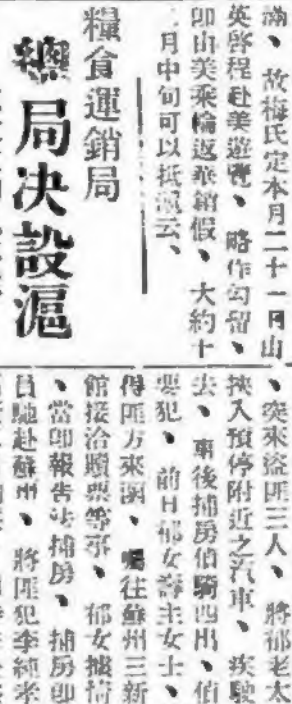 滿、故梅氏定本月二十一日由
英啓程赴美遊覽、略作勾留、
卽由美乘輪返華銷假、大約十
月中旬可以抵滬云、
糧食運銷局
總局决設滬
、突來盜匪三人、將郁老太
挾入預停附近之汽車、疾駛
去、事後捕房偵騎四出、偵
犯、前日郁女壽主女士、
得匪方來函、囑往蘇州三新
館接洽贖票等事、郁女據情
、當卽報告捕房、捕房卽
員馳赴蘇州、將匪犯李純孝